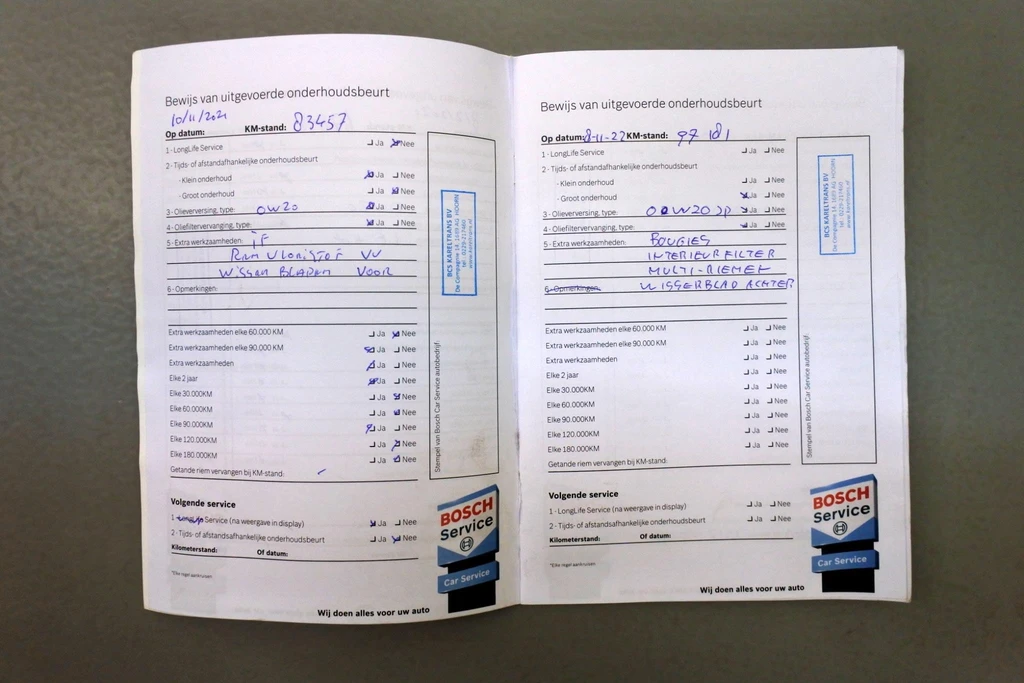 Bewijs van uitgevoerde onderhoudsbeurt
10/11/2021
Op datum: KM-stand: 83457
1 - LongLife Service Ja Nee
2 - Tijds- of afstandafhankelijke onderhoudsbeurt
- Klein onderhoud Ja Nee
- Groot onderhoud Ja Nee
3 - Olieverversing, type: 0W20 Ja Nee
4 - Oliefiltervervanging, type: Ja Nee
5 - Extra werkzaamheden: IF
VV
WISSEN BLADEN VOOR
6 - Opmerkingen:
Extra werkzaamheden elke 60.000 KM Ja Nee
Extra werkzaamheden elke 90.000 KM Ja Nee
Extra werkzaamheden Ja Nee
Elke 2 jaar Ja Nee
Elke 30.000KM Ja Nee
Elke 60.000KM Ja Nee
Elke 90.000KM Ja Nee
Elke 120.000KM Ja Nee
Elke 180.000KM Ja Nee
Getande riem vervangen bij KM-stand:
Volgende service
1 - LongLife Service (na weergave in display) Ja Nee
2 - Tijds- of afstandsafhankelijke onderhoudsbeurt Ja Nee
Kilometerstand: Of datum:
*Elke regel aankruisen
BCS KARELTRANS BV
De Compagnie 14, 1689 AG HOORN
tel.: 0229-217460
www.kareltrans.nl
Stempel van Bosch Car Service autobedrijf:
BOSCH
Service
Car Service
Wij doen alles voor uw auto
Bewijs van uitgevoerde onderhoudsbeurt
Op datum: 8-11-22 KM-stand: 97 181
1 - LongLife Service Ja Nee
2 - Tijds- of afstandafhankelijke onderhoudsbeurt
- Klein onderhoud Ja Nee
- Groot onderhoud Ja Nee
3 - Olieverversing, type: 0W20 Ja Nee
4 - Oliefiltervervanging, type: Ja Nee
5 - Extra werkzaamheden: BOUGIES
INTERIEURFILTER
MULTI-RIEMEN
6 - Opmerkingen: WISSERBLAD ACHTER
Extra werkzaamheden elke 60.000 KM Ja Nee
Extra werkzaamheden elke 90.000 KM Ja Nee
Extra werkzaamheden Ja Nee
Elke 2 jaar Ja Nee
Elke 30.000KM Ja Nee
Elke 60.000KM Ja Nee
Elke 90.000KM Ja Nee
Elke 120.000KM Ja Nee
Elke 180.000KM Ja Nee
Getande riem vervangen bij KM-stand:
Volgende service
1 - LongLife Service (na weergave in display) Ja Nee
2 - Tijds- of afstandsafhankelijke onderhoudsbeurt Ja Nee
Kilometerstand: Of datum:
*Elke regel aankruisen
BCS KARELTRANS BV
De Compagnie 14, 1689 AG HOORN
tel.: 0229-217460
www.kareltrans.nl
Stempel van Bosch Car Service autobedrijf:
BOSCH
Service
Car Service
Wij doen alles voor uw auto